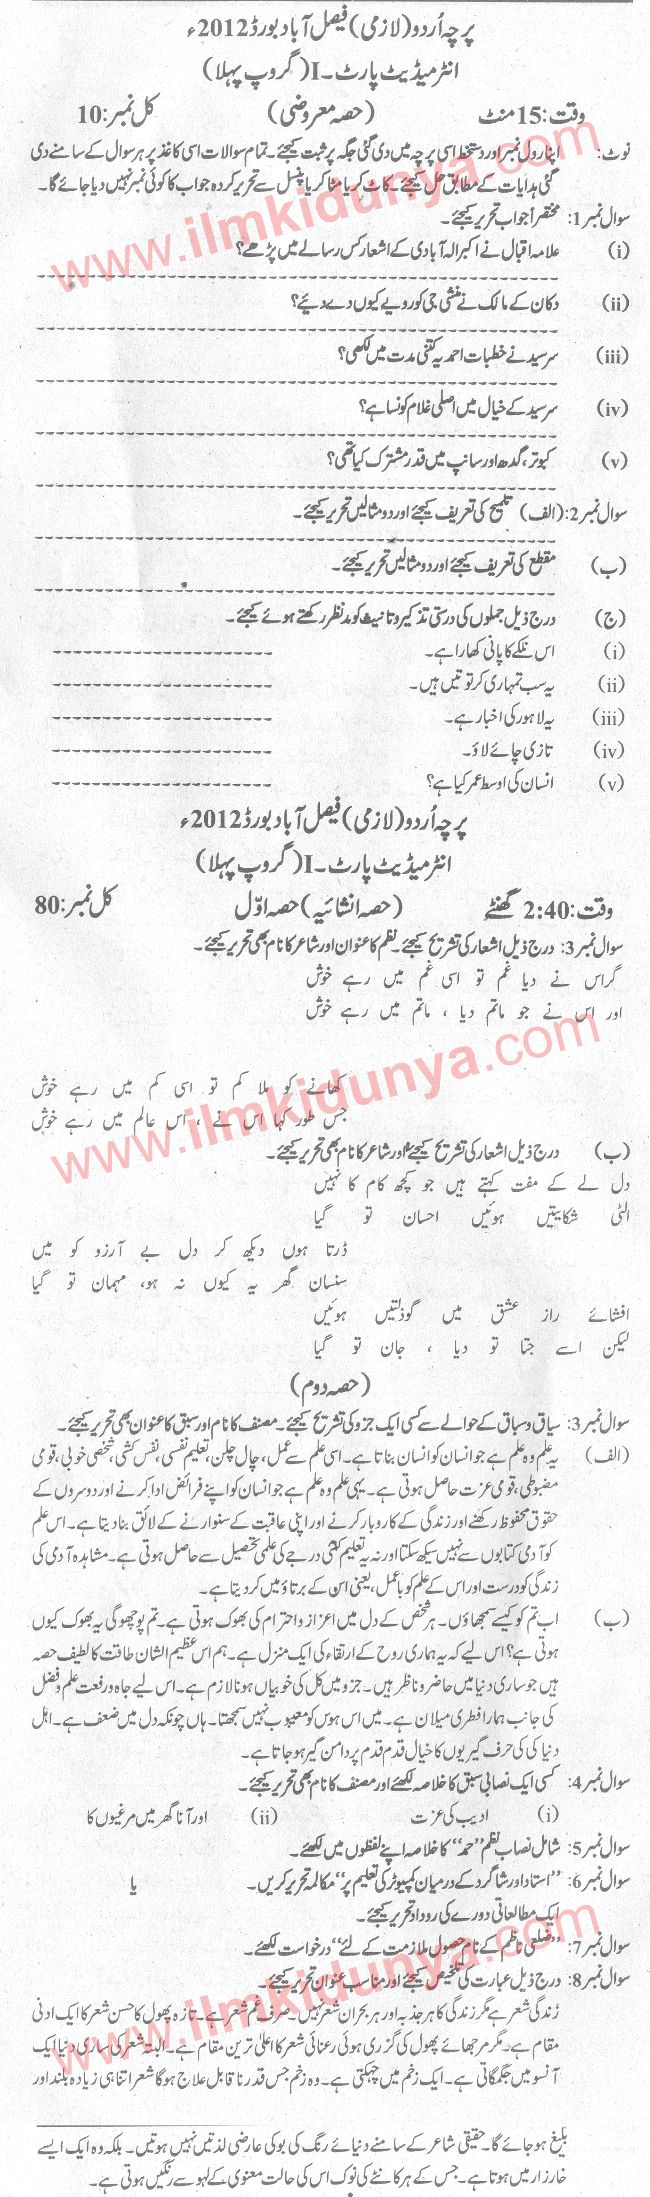 پرچہ اُردو (لازمی) فیصل آباد بورڈ 2012ء
انٹرمیڈیٹ پارٹ۔I (گروپ پہلا)
وقت: 15 منٹ (حصہ معروضی) کل نمبر: 10
نوٹ: اپنا رول نمبر اور دستخط اسی پرچہ میں دی گئی جگہ پر ثبت کیجئے۔ تمام سوالات اسی کاغذ پر ہر سوال کے سامنے دی
گئی ہدایات کے مطابق حل کیجئے۔ کاٹ کر یا مٹا کر یا پنسل سے تحریر کردہ جواب کا کوئی نمبر نہیں دیا جائے گا۔
www.ilmkidunya.com
سوال نمبر 1: مختصراً جواب تحریر کیجئے۔
(i) علامہ اقبال نے اکبر الہ آبادی کے اشعار کس رسالے میں پڑھے؟
(ii) دکان کے مالک نے منشی جی کو روپے کیوں دے دیئے؟
(iii) سرسید نے خطبات احمدیہ کتنی مدت میں لکھی؟
(iv) سرسید کے خیال میں اصلی غلام کونسا ہے؟
(v) کبوتر، گدھ اور سانپ میں قدر مشترک کیا تھی؟
سوال نمبر 2: (الف) تلمیح کی تعریف کیجئے اور دو مثالیں تحریر کیجئے۔
(ب) مقطع کی تعریف کیجئے اور دو مثالیں تحریر کیجئے۔
(ج) درج ذیل جملوں کی درستی تذکیر و تانیث کو مدنظر رکھتے ہوئے کیجئے۔
(i) اس نلکے کا پانی کھارا ہے۔
(ii) یہ سب تمہاری کرتوتیں ہیں۔
(iii) یہ لاہور کی اخبار ہے۔
(iv) تازی چائے لاؤ۔
(v) انسان کی اوسط عمر کیا ہے؟
پرچہ اُردو (لازمی) فیصل آباد بورڈ 2012ء
انٹرمیڈیٹ پارٹ۔I (گروپ پہلا)
وقت: 2:40 گھنٹے (حصہ انشائیہ) حصہ اوّل کل نمبر: 80
سوال نمبر 3: درج ذیل اشعار کی تشریح کیجئے۔ نظم کا عنوان اور شاعر کا نام بھی تحریر کیجئے۔
گر اس نے دیا غم تو اسی غم میں رہے خوش
اور اس نے جو ماتم دیا، ماتم میں رہے خوش
کھانے کو ملا کم تو اسی کم میں رہے خوش
جس طور کہا اس نے، اس عالم میں رہے خوش
www.ilmkidunya.com
(ب) درج ذیل اشعار کی تشریح کیجئے اور شاعر کا نام بھی تحریر کیجئے۔
دل لے کے مفت کہتے ہیں جو کچھ کام کا نہیں
الٹی شکایتیں ہوئیں احسان تو گیا
ڈرتا ہوں دیکھ کر دل بے آرزو کو میں
سنسان گھر یہ کیوں نہ ہو، مہمان تو گیا
افشائے راز عشق میں گو ذلتیں ہوئیں
لیکن اسے جتا تو دیا، جان تو گیا
(حصہ دوم)
سوال نمبر 3: سیاق و سباق کے حوالے سے کسی ایک جزو کی تشریح کیجئے۔ مصنف کا نام اور سبق کا عنوان بھی تحریر کیجئے۔
(الف) یہ علم وہ علم ہے جو انسان کو انسان بناتا ہے۔ اسی علم سے عمل، چال چلن، تعلیم نفسی، نفس کشی، شخصی خوبی، قومی
مضبوطی، قومی عزت حاصل ہوتی ہے۔ یہی علم وہ علم ہے جو انسان کو اپنے فرائض ادا کرنے اور دوسروں کے
حقوق محفوظ رکھنے اور زندگی کے کاروبار کرنے اور اپنی عاقبت کے سنوارنے کے لائق بنا دیتا ہے۔ اس علم
کو آدمی کتابوں سے نہیں سیکھ سکتا اور نہ یہ تعلیم کسی درجے کی علمی تحصیل سے حاصل ہوتی ہے۔ مشاہدہ آدمی کی
زندگی کو درست اور اس کے علم کو باعمل، یعنی ان کے برتاؤ میں کر دیتا ہے۔
(ب) اب تم کو کیسے سمجھاؤں۔ ہر شخص کے دل میں اعزاز و احترام کی بھوک ہوتی ہے۔ تم پوچھو گی یہ بھوک کیوں
ہوتی ہے؟ اس لیے کہ یہ ہماری روح کے ارتقاء کی ایک منزل ہے۔ ہم اس عظیم الشان طاقت کا لطیف حصہ
ہیں جو ساری دنیا میں حاضر و ناظر ہیں۔ جزو میں کل کی خوبیاں ہونا لازم ہے۔ اس لیے جاہ و رفعت علم و فضل
کی جانب ہمارا فطری میلان ہے۔ میں اس ہوس کو معیوب نہیں سمجھتا۔ ہاں چونکہ دل میں ضعف ہے۔ اہل
دنیا کی کی حرف گیریوں کا خیال قدم قدم پر دامن گیر ہو جاتا ہے۔
سوال نمبر 4: کسی ایک نصابی سبق کا خلاصہ لکھئے اور مصنف کا نام بھی تحریر کیجئے۔
(i) ادیب کی عزت (ii) اور آنا گھر میں مرغیوں کا
سوال نمبر 5: شامل نصاب نظم "حمد" کا خلاصہ اپنے لفظوں میں لکھئے۔
سوال نمبر 6: "استاد اور شاگرد کے درمیان کمپیوٹر کی تعلیم پر" مکالمہ تحریر کریں۔ یا
ایک مطالعاتی دورے کی روداد تحریر کیجئے۔
سوال نمبر 7: "ضلعی ناظم کے نام حصول ملازمت کے لئے" درخواست لکھئے۔
سوال نمبر 8: درج ذیل عبارت کی تلخیص کیجئے اور مناسب عنوان تحریر کیجئے۔
www.ilmkidunya.com
زندگی شعر ہے مگر زندگی کا ہر جذبہ اور ہر بحران شعر نہیں۔ صرف غم شعر ہے۔ تازہ پھول کا حسن شعر کا ایک ادنیٰ
مقام ہے۔ مگر مرجھائے پھول کی گزری ہوئی رعنائی شعر کا اعلیٰ ترین مقام ہے۔ البتہ شعر کی ساری دنیا ایک
آنسو میں جگمگاتی ہے۔ ایک زخم میں چہکتی ہے۔ وہ زخم جس قدر ناقابل علاج ہوگا شعر اتنا ہی زیادہ بلند اور
بلیغ ہو جائے گا۔ حقیقی شاعر کے سامنے دنیائے رنگ کی بو کی عارضی لذتیں نہیں ہوتیں۔ بلکہ وہ ایک ایسے
خارزار میں ہوتا ہے۔ جس کے ہر کانٹے کی نوک اس کی حالت معنوی کے لہو سے رنگیں ہوتی ہے۔